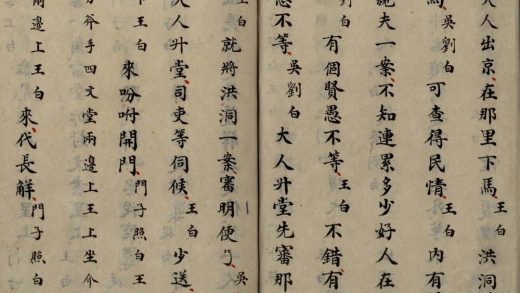 大人出京、在那里下馬、王白 洪洞
吳劉白 可查得民情、王白 內有
夫一案、不知連累多少好人在
白 有個賢愚不等、王白 不錯有
愚不等、吳劉白 大人升堂先審那
王白 就將洪洞一案、審明便了、吳
大人升堂、司吏等伺候、王白 少送、
王白 來吩咐開門、門子照白 王
斧手四文堂兩邊上王上坐介
兩邊上王白 來、代長解、門子照白